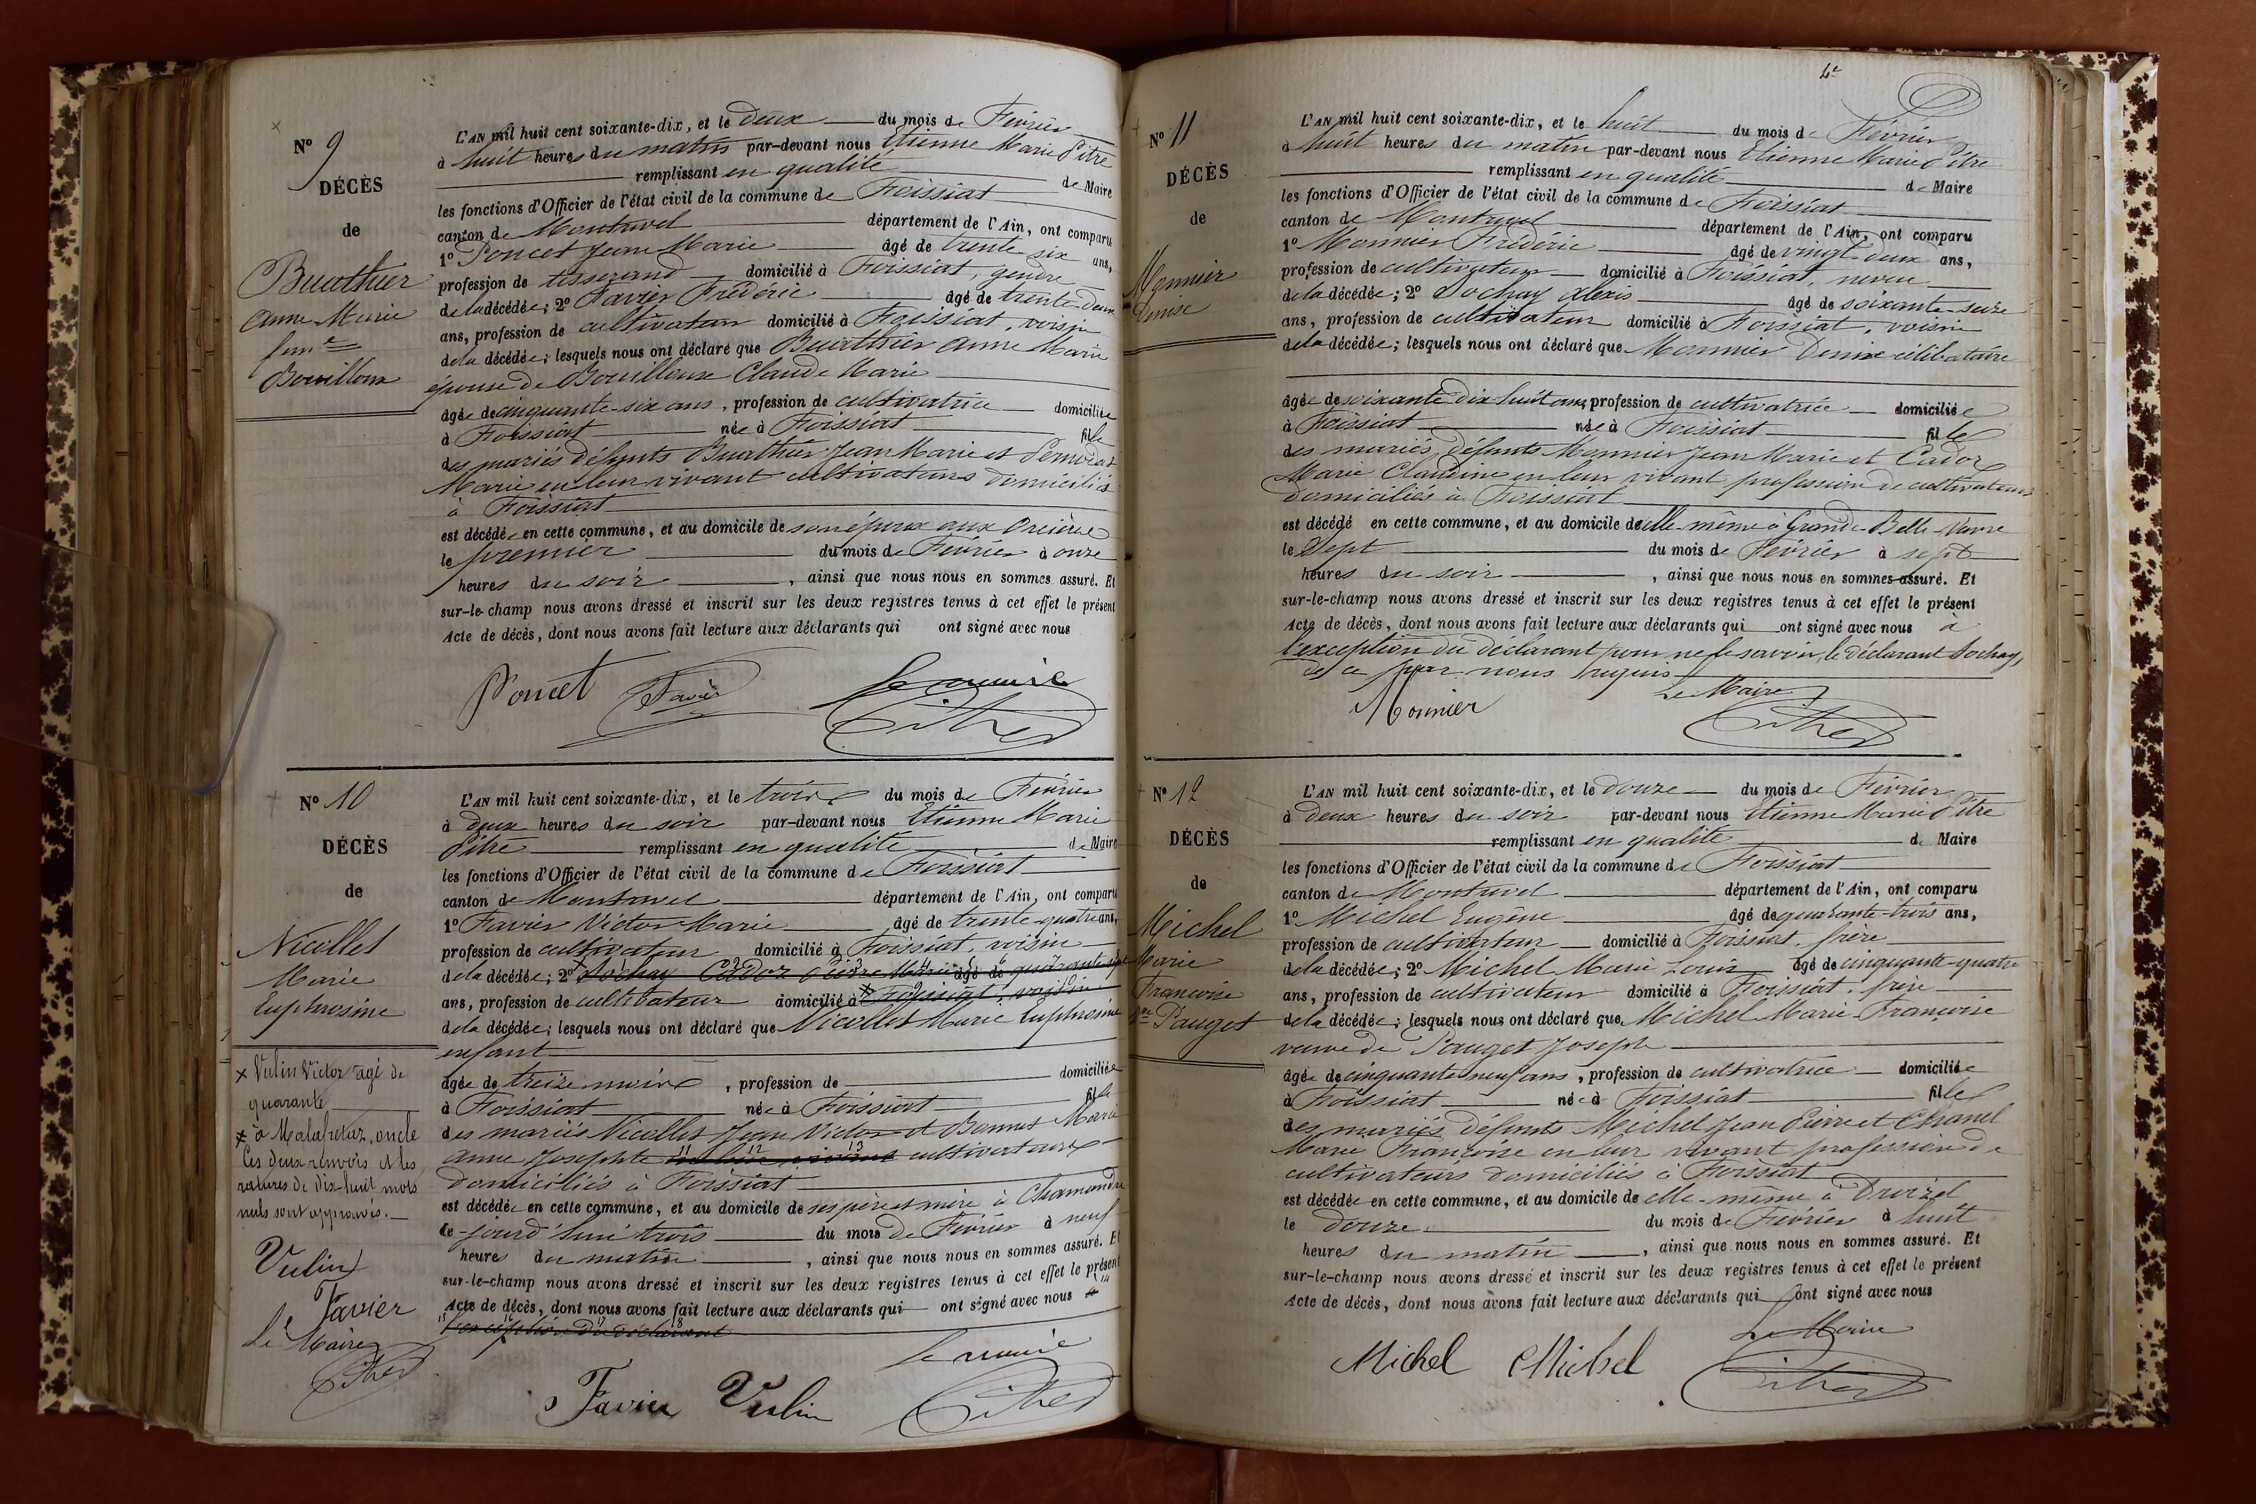 N° 9
DÉCÈS
de
Buathier
Anne Marie
fem^e
Bouilloux
L'AN mil huit cent soixante-dix, et le deux du mois de Février
à huit heures du matin par-devant nous Etienne Marie Pitre
remplissant en qualité de Maire
les fonctions d'Officier de l'état civil de la commune de Foissiat
canton de Montrevel département de l'Ain, ont comparu
1° Poncet Jean Marie âgé de trente six ans,
profession de tisserand domicilié à Foissiat, gendre
de la décédée; 2° Favier Frédéric âgé de trente deux
ans, profession de cultivateur domicilié à Foissiat, voisin
de la décédée; lesquels nous ont déclaré que Buathier Anne Marie
épouse de Bouilloux Claude Marie
âgée de cinquante-six ans, profession de cultivatrice domiciliée
à Foissiat née à Foissiat fille
des mariés défunts Buathier Jean Marie et
Marie en leur vivant cultivateurs domiciliés
à Foissiat
est décédée en cette commune, et au domicile de son époux aux
le premier du mois de Février à onze
heures du soir, ainsi que nous nous en sommes assuré. Et
sur-le-champ nous avons dressé et inscrit sur les deux registres tenus à cet effet le présent
Acte de décès, dont nous avons fait lecture aux déclarants qui ont signé avec nous
Poncet Favier Le maire
Pitre
N° 10
DÉCÈS
de
Nicollet
Marie
Euphrosine
x Vulin Victor agé de
quarante
x à Malafretaz, oncle
Ces deux renvois et les
ratures de dix-huit mots
nuls sont approuvés.
Vulin
Favier
Le Maire
Pitre
L'AN mil huit cent soixante-dix, et le trois du mois de Février
à deux heures du soir par-devant nous Etienne Marie
Pitre remplissant en qualité de Maire
les fonctions d'Officier de l'état civil de la commune de Foissiat
canton de Montrevel département de l'Ain, ont comparu
1° Favier Victor Marie âgé de trente-quatre ans,
profession de cultivateur domicilié à Foissiat, voisin
de la décédée; 2° Sochay Cador Pierre Marie âgé de quarante sept
ans, profession de cultivateur domicilié à Foissiat, voisin
de la décédée; lesquels nous ont déclaré que Nicollet Marie Euphrosine
enfant
âgée de treize mois, profession de domiciliée
à Foissiat née à Foissiat fille
des mariés Nicollet Jean Victor et Bonnet Marie
Anne Josephte cultivateurs
domiciliés à Foissiat
est décédée en cette commune, et au domicile de ses père et mère à
le jourd'hui trois du mois de Février à neuf
heures du matin, ainsi que nous nous en sommes assuré. Et
sur-le-champ nous avons dressé et inscrit sur les deux registres tenus à cet effet le présent
Acte de décès, dont nous avons fait lecture aux déclarants qui ont signé avec nous à
l'exception du déclarant
Le maire
Favier Vulin Pitre
N° 11
DÉCÈS
de
Monnier
Denise
L'AN mil huit cent soixante-dix, et le huit du mois de Février
à huit heures du matin par-devant nous Etienne Marie Pitre
remplissant en qualité de Maire
les fonctions d'Officier de l'état civil de la commune de Foissiat
canton de Montrevel département de l'Ain, ont comparu
1° Monnier Frédéric âgé de vingt deux ans,
profession de cultivateur domicilié à Foissiat, neveu
de la décédée; 2° Sochay Alexis âgé de soixante-seize
ans, profession de cultivateur domicilié à Foissiat, voisin
de la décédée; lesquels nous ont déclaré que Monnier Denise célibataire
âgée de soixante dix huit ans, profession de cultivatrice domiciliée
à Foissiat née à Foissiat fille
des mariés défunts Monnier Jean Marie et Cador
Marie Claudine en leur vivant profession de cultivateurs
domiciliés à Foissiat
est décédé en cette commune, et au domicile d'elle même à Grande Belle Vavre
le Sept du mois de Février à sept
heures du soir, ainsi que nous nous en sommes assuré. Et
sur-le-champ nous avons dressé et inscrit sur les deux registres tenus à cet effet le présent
Acte de décès, dont nous avons fait lecture aux déclarants qui ont signé avec nous à
l'exception du déclarant pour ne le savoir, le déclarant Sochay,
de ce par nous requis
Monnier Le Maire
Pitre
N° 12
DÉCÈS
de
Michel
Marie
Françoise
v^ve Pauget
L'AN mil huit cent soixante-dix, et le douze du mois de Février
à deux heures du soir par-devant nous Etienne Marie Pitre
remplissant en qualité de Maire
les fonctions d'Officier de l'état civil de la commune de Foissiat
canton de Montrevel département de l'Ain, ont comparu
1° Michel Eugène âgé de quarante-trois ans,
profession de cultivateur domicilié à Foissiat, frère
de la décédée; 2° Michel Marie Louis âgé de cinquante-quatre
ans, profession de cultivateur domicilié à Foissiat, frère
de la décédée; lesquels nous ont déclaré que Michel Marie Françoise
veuve de Pauget Joseph
âgée de cinquante neuf ans, profession de cultivatrice domiciliée
à Foissiat née à Foissiat fille
des mariés défunts Michel Jean Pierre et Chanel
Marie Françoise en leur vivant profession de
cultivateurs domiciliés à Foissiat
est décédée en cette commune, et au domicile de elle-même à
le douze du mois de Février à huit
heures du matin, ainsi que nous nous en sommes assuré. Et
sur-le-champ nous avons dressé et inscrit sur les deux registres tenus à cet effet le présent
Acte de décès, dont nous avons fait lecture aux déclarants qui ont signé avec nous
Le Maire
Michel Michel Pitre